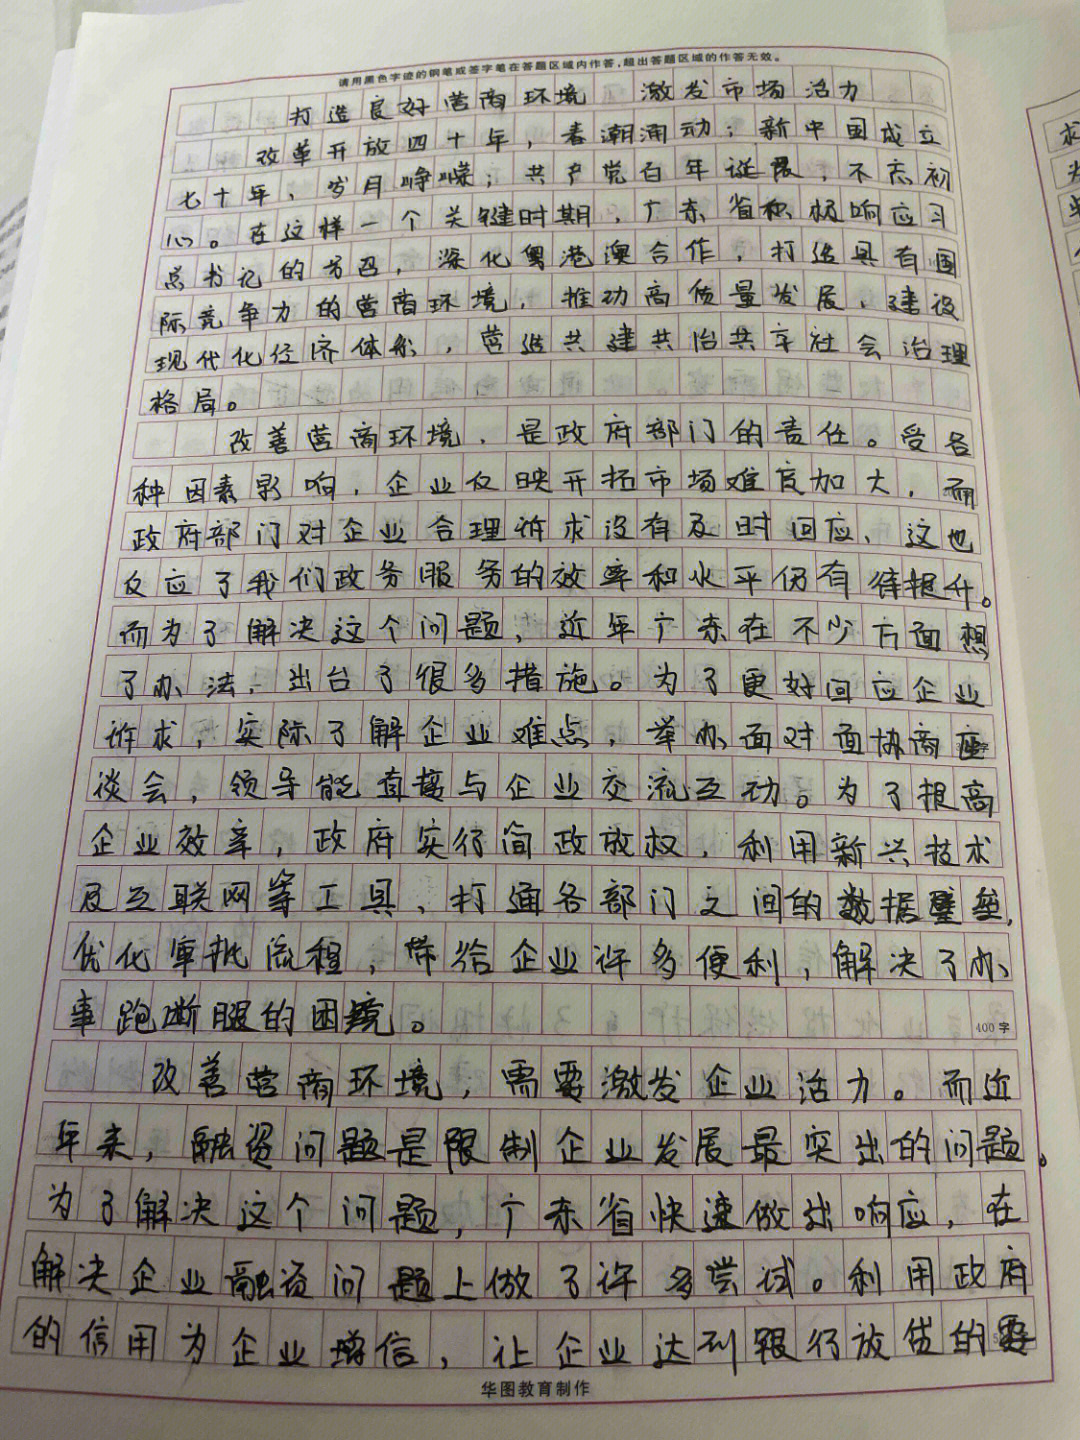 请用黑色字迹的钢笔或签字笔在答题区域内作答,超出答题区域的作答无效。
打造良好营商环境 激发市场活力
改革开放四十年，春潮涌动；新中国成立
七十年，岁月峥嵘；共产党百年诞辰，不忘初
心。在这样一个关键时期，广东省积极响应习
总书记的号召，深化粤港澳合作，打造具有国
际竞争力的营商环境，推动高质量发展，建设
现代化经济体系，营造共建共治共享社会治理
格局。
改善营商环境，是政府部门的责任。受各
种因素影响，企业反映开拓市场难度加大，而
政府部门对企业合理诉求没有及时回应，这也
反应了我们政务服务的效率和水平仍有待提升。
而为了解决这个问题，近年广东在不少方面想
了办法，出台了很多措施。为了更好回应企业
诉求，实际了解企业难点，举办面对面协商座
谈会，领导能直接与企业交流互动。为了提高
企业效率，政府实行简政放权，利用新兴技术
及互联网等工具，打通各部门之间的数据壁垒，
优化审批流程，带给企业许多便利，解决了办
事跑断腿的困境。
400字
改善营商环境，需要激发企业活力。而近
年来，融资问题是限制企业发展最突出的问题。
为了解决这个问题，广东省快速做出响应，在
解决企业融资问题上做了许多尝试。利用政府
的信用为企业增信，让企业达到银行放贷的要
华图教育制作